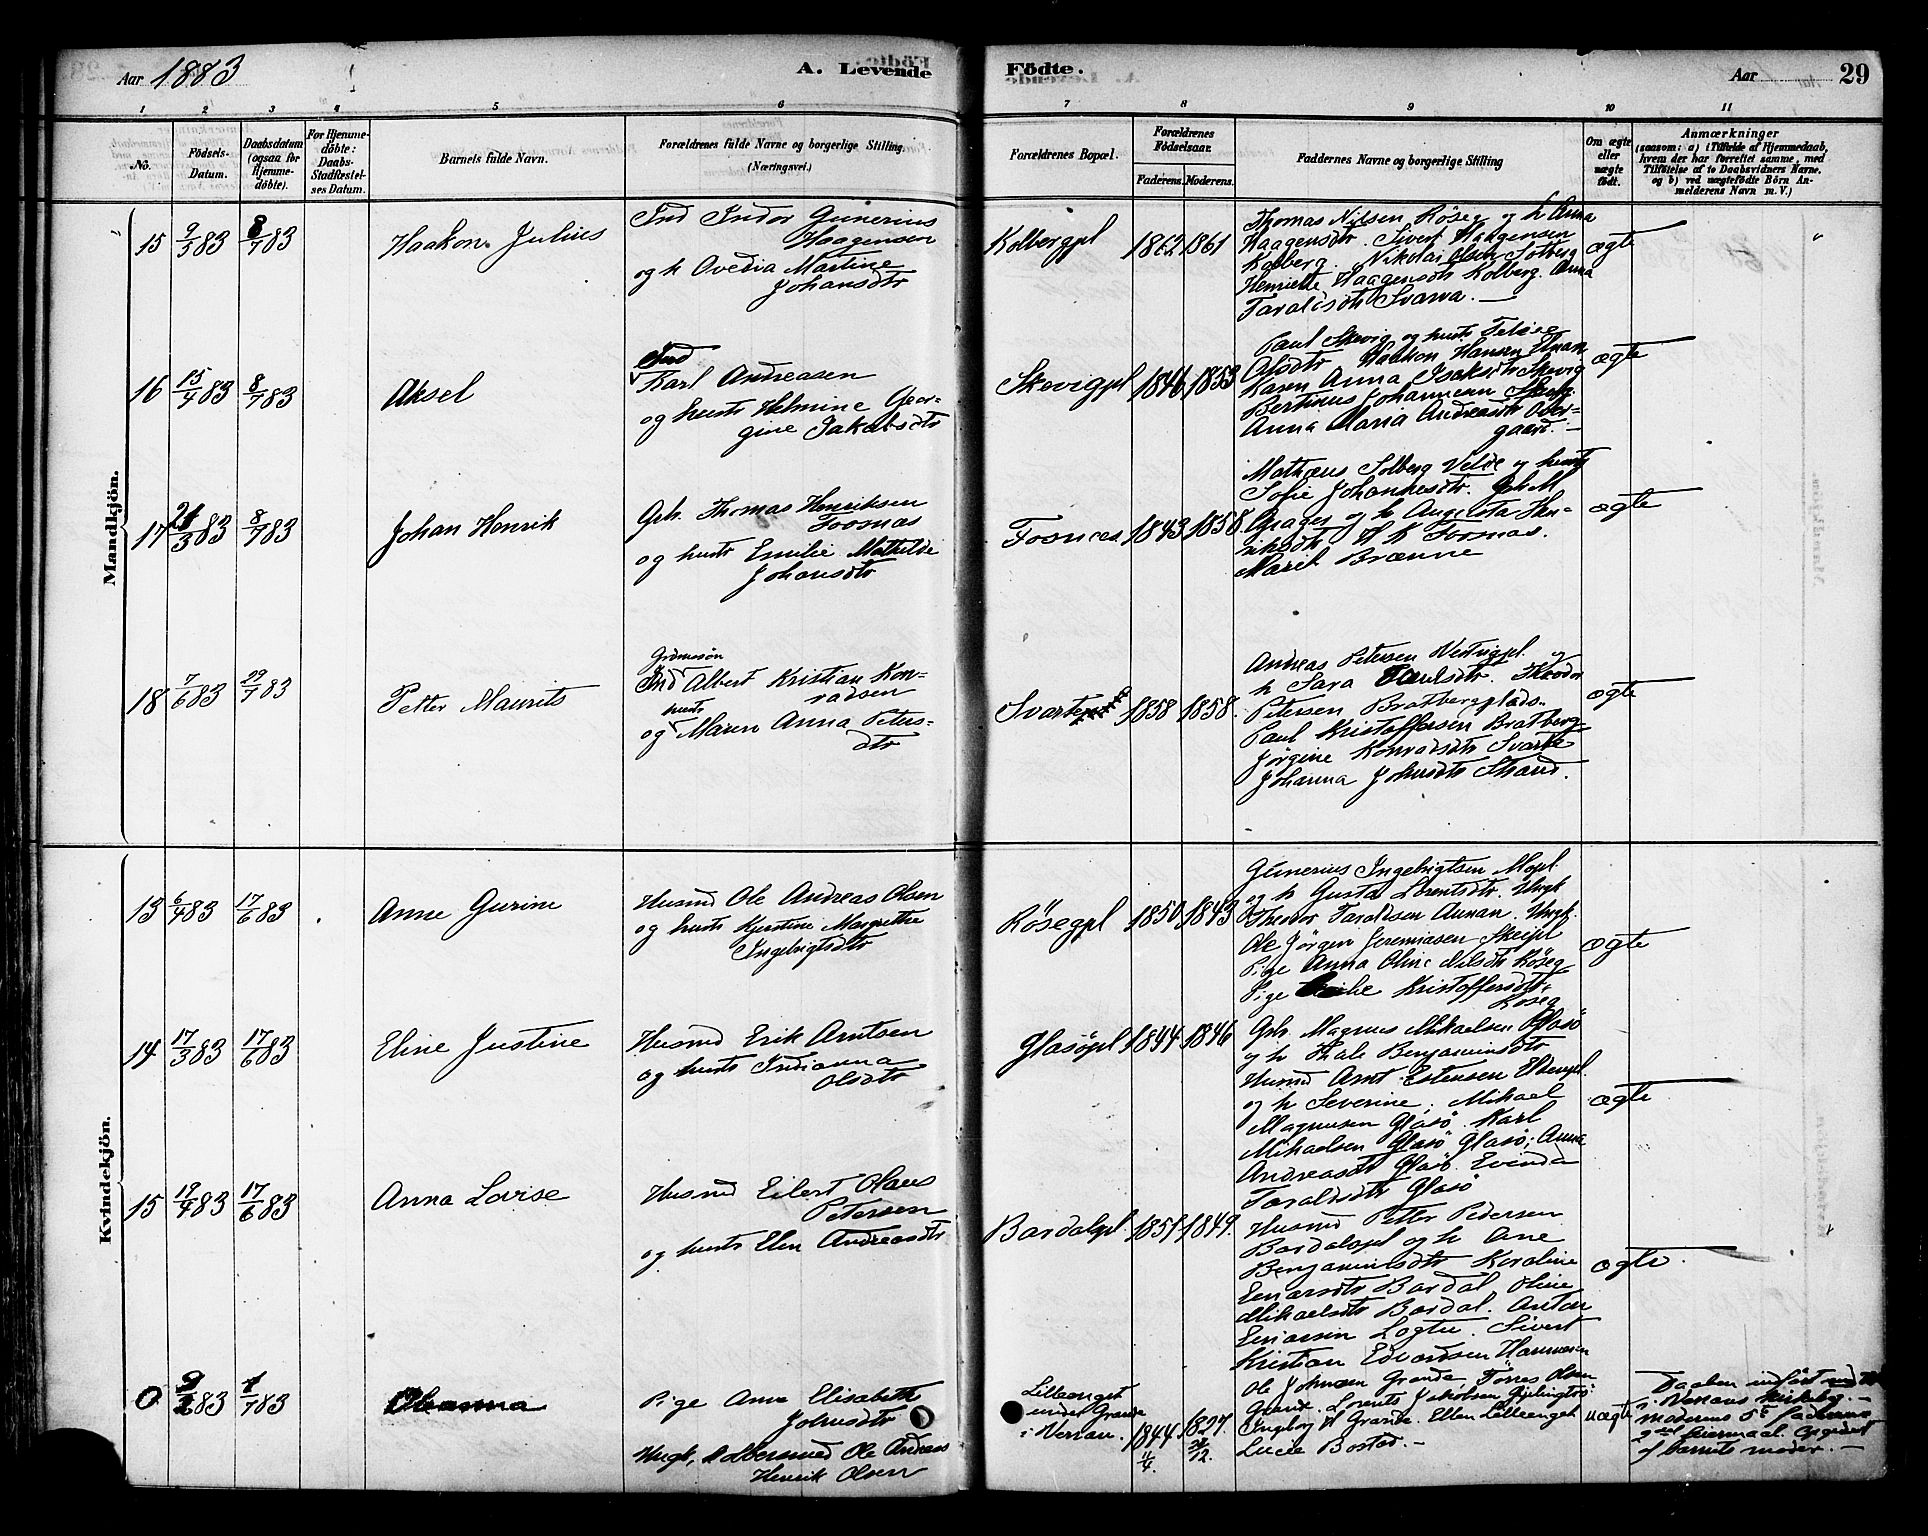 Aar 1883
A. Levende
Födte.
Aar
29
1 2 3 4 5 6 7 8 9 10 11
No.
Födsels-
Datum.
Daabsdatum
(ogsaa for
Hjemme-
döbte).
For Hjemme-
döbte:
Daabs-
Stadfæstel-
ses Datum.
Barnets fulde Navn.
Forældrenes fulde Navne og borgerlige Stilling.
(Næringsvei.)
Forældrenes Bopæl.
Forældrenes
Födselsaar.
Faderens. Moderens.
Faddernes Navne og borgerlige Stilling
Om ægte
eller
uægte
födt.
Anmærkninger
(saasom: a) i Tilfælde af Hjemmedaab,
hvem der har forrettet samme, med
Tilföielse af to Daabsvidners Navne,
og b) ved uægtefödte Börn An-
melderens Navn m. V.)
Mandkjön.
15 9/3 83 8/7 83
Haakon Julius
Ind Indor Gunerius
Haagensen
og h Ovedia Martine
Johansdtr
Kolbergpl 1862 1861
Thomas Nilsen Røseg og h Anna
Haagensdtr. Sivert Haagensen
Kolberg. Nikolai Olsen Solberg
Henriette Haagensdtr Kolberg. Anna
Taraldsdtr Svarva. —
ægte
16 15/4 83 8/7 83
Aksel
Ind
Karl Andreasen
og hustr Helmine Geor-
gine Jakobsdtr
Skevigpl 1846 1853
Paul Skevig og hustr
Olsdtr Haakon Hansen
Karen Anna Isaksdtr Skevig
Bertinus Johannesen
Anna Maria Andreasdtr Over-
gaard. —
ægte
17 /3 83 8/7 83
Johan Henrik
Grh. Thomas Henriksen
Fosnas
og hustr Emilie Mathilde
Johansdtr
Fosnæs 1843 1858
Mathæus Solberg Velde og hustr
Sofie Johannesdtr. Joh M
og h Augusta Hen-
riksdtr H K Fosnas.
Marit Brænne
ægte
18 7/6 83 29/7 83
Petter Maurits
Grdmesøn
Ind Albert Kristian Kon-
radsen
hustr
og Maren Anna Peters-
dtr
Svarte 1858 1858.
Andreas Petersen Vestvigpl og
h Sara Paulsdtr. Theodor
Petersen Bratbergplads.
Paul Kristoffersen Bratberg
Jørgine Konradsdtr Svarte
Johanna Johnsdtr Strand.
ægte
Kvindekjön.
13 6/4 83 17/6 83
Anne Gurine
Husmd Ole Andreas Olsen
og hustr Kjerstine Margrethe
Ingebrigtsdtr
Røsegpl 1850 1843
Gunerius Ingebrigtsen Mopl
og h Gusta Lorentsdtr. Ungk
Theodor Taraldsen Aunan. Ungk.
Ole Jørgen Jeremiasen Skeipl
Pige Anna Oline Nilsdtr Røseg
Pige Kristoffersdtr
Røseg
ægte
14 17/3 83 17/6 83
Eline Justine
Husmd Erik Arntsen
og hustr Indianna
Olsdtr
Glasøpl 1844 1846
Grh. Magnus Mikaelsen Glasø
og h Benjaminsdtr
Husmd Arnt Estensen
og h Severine. Mikael
Magnusen Glasø. Karl
Mikaelsen Glasø Glasø; Anna
Andreasdtr Glasø. Evenda
Taraldsdtr Glasø
ægte
15 19/4 83 17/6 83
Anna Lovise
Husmd Eilert Olaus
Petersen
og hustr Elen Andreasdtr
Bardalspl 1851 1849.
Husmd Petter Pedersen
Bardalspl og h Ane
Benjaminsdtr Karoline
Einarsdtr Bardal Oline
Mikaelsdtr Bardal. Anton
Einarsen Lagtu. Sivert
Kristian Edvardsen
ægte.
O 83 /7 83
Oleanna
Pige Anne Elisabeth
Johnsdtr
Ungk, Ole Andreas
Henrik Olsen
Lilleenget
under Grande
i Verran. 1844 11/4. 1827
Ole Johnsen Grande Tørres Olsen
Grand. Lorents Jakobsen
Ingeborg Grande. Ellen Lilleenget
Lucie Bostad. —
uægte
Daaben indført
i Verrans Kirkebog. —
moderens 5te faderens
2det leiermaal. Opgivet
af barnets moder. —